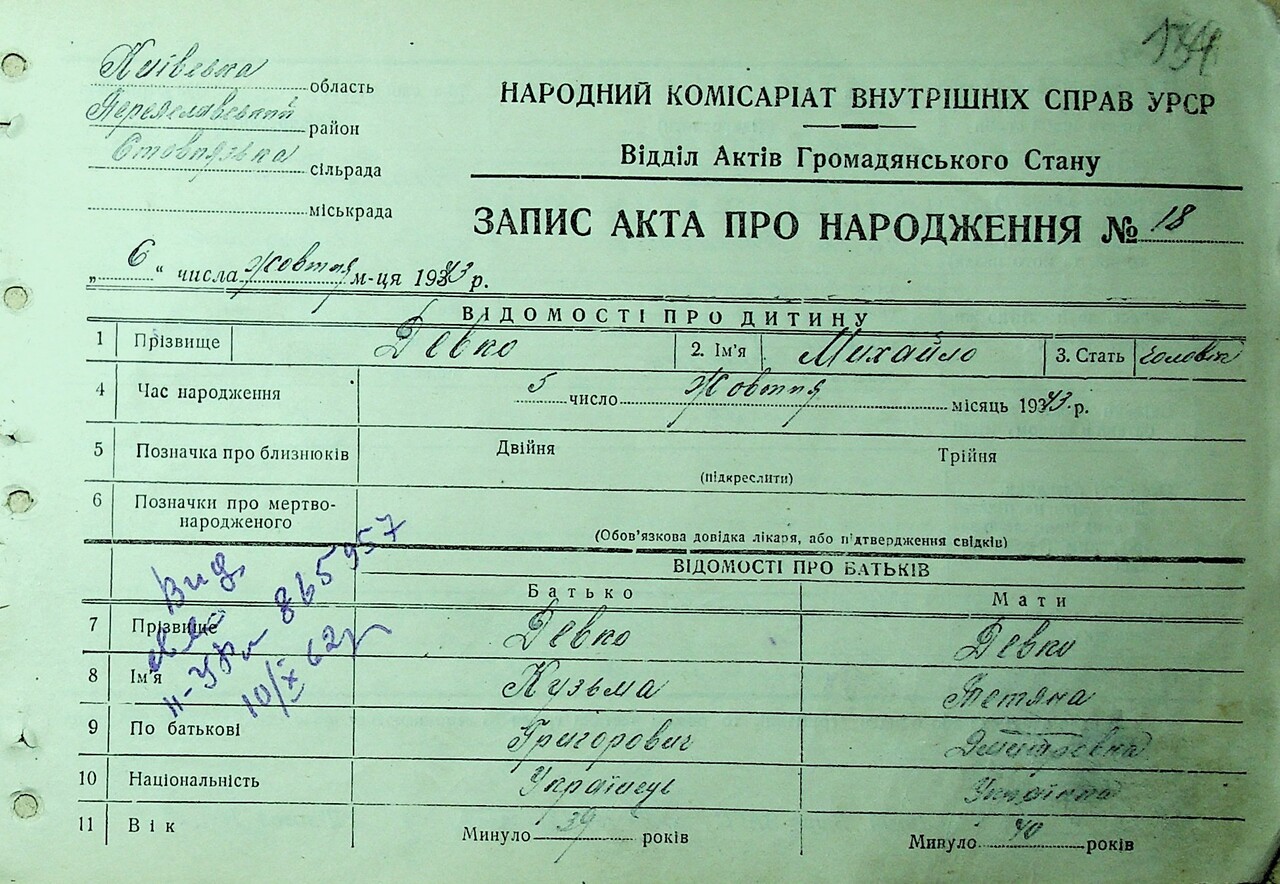 144
Київська область
Переяславський район
Стовпязька сільрада
міськрада
НАРОДНИЙ КОМІСАРІАТ ВНУТРІШНІХ СПРАВ УРСР
Відділ Актів Громадянського Стану
ЗАПИС АКТА ПРО НАРОДЖЕННЯ № 18
„ 6 “ числа жовтня м-ця 1943 р.
ВІДОМОСТІ ПРО ДИТИНУ
1 Прізвище Девко 2. Ім'я Михайло 3. Стать чоловіч
4 Час народження 5 число жовтня місяць 1943 р.
5 Позначка про близнюків Двійня Трійня
(підкреслити)
6 Позначки про мертво-
народженого
(Обов'язкова довідка лікаря, або підтвердження свідків)
ВІДОМОСТІ ПРО БАТЬКІВ
Батько Мати
7 Прізвище Девко Девко
8 Ім'я Кузьма Тетяна
9 По батькові Григорович Дмитровна
10 Національність Українець Українка
11 Вік Минуло 39 років Минуло 40 років
Вид
865957
10/X 62р